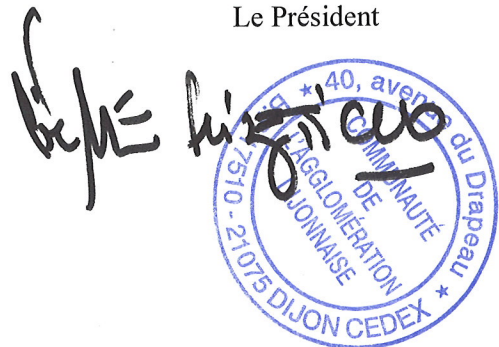 Le Président
★ 40, avenue du Drapeau ★
7510 - 21075 DIJON CEDEX
COMMUNAUTÉ
DE
L'AGGLOMÉRATION
DIJONNAISE